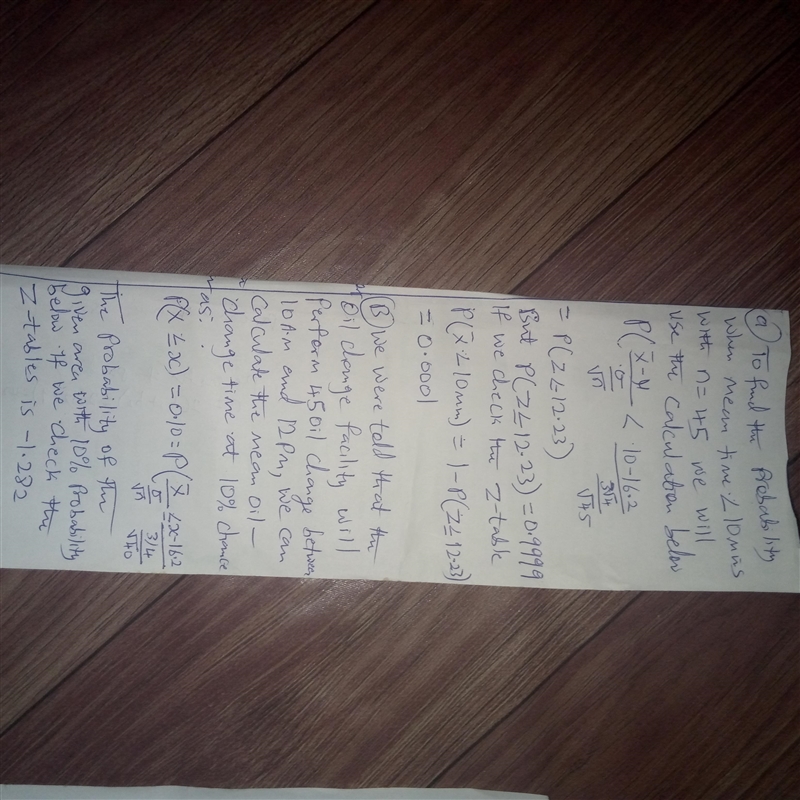 (a) To find the Probability
when mean time < 10mns
with n = 45 we will
use the calculation below
P( x̄ - μ / σ/√n < 10 - 16.2 / 3.4/√45
= P(Z ≤ 12.23)
But P(Z ≤ 12.23) = 0.9999
If we check the Z-table
P(x̄ < 10mn) = 1 - P(Z ≤ 12.23)
= 0.0001
(B) we were told that the
Oil change facility will
Perform 45 oil change between
10A.m and 12Pm, we can
Calculate the mean oil -
change time at 10% chance
as:
P(X ≤ x) = 0.10 = P( x̄ / σ/√n ≤ x - 16.2 / 3/4/√40
The Probability of the
given area with 10% Probability
below. If we check the
Z-tables is -1.282